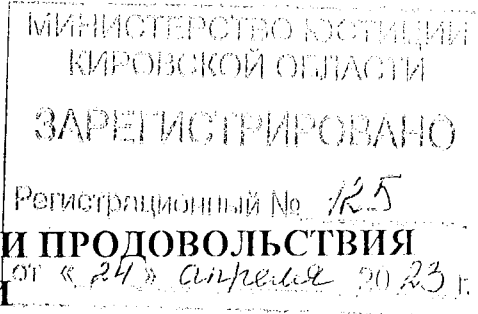 МИНИСТЕРСТВО ЮСТИЦИИ
КИРОВСКОЙ ОБЛАСТИ
ЗАРЕГИСТРИРОВАНО
Регистрационный № 125
И ПРОДОВОЛЬСТВИЯ
от « 24 » апреля 20 23 г.